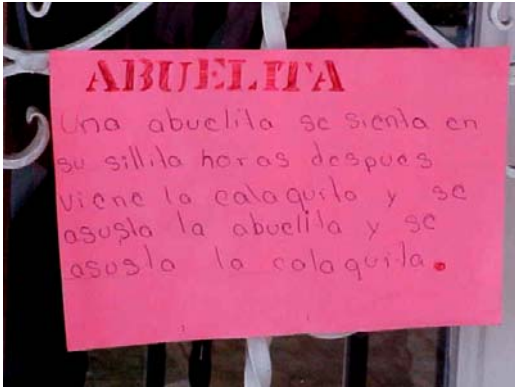 ABUELITA
Una abuelita se sienta en
su sillita horas despues
viene la calaquita y se
asusta la abuelita y se
asusta la calaquita.